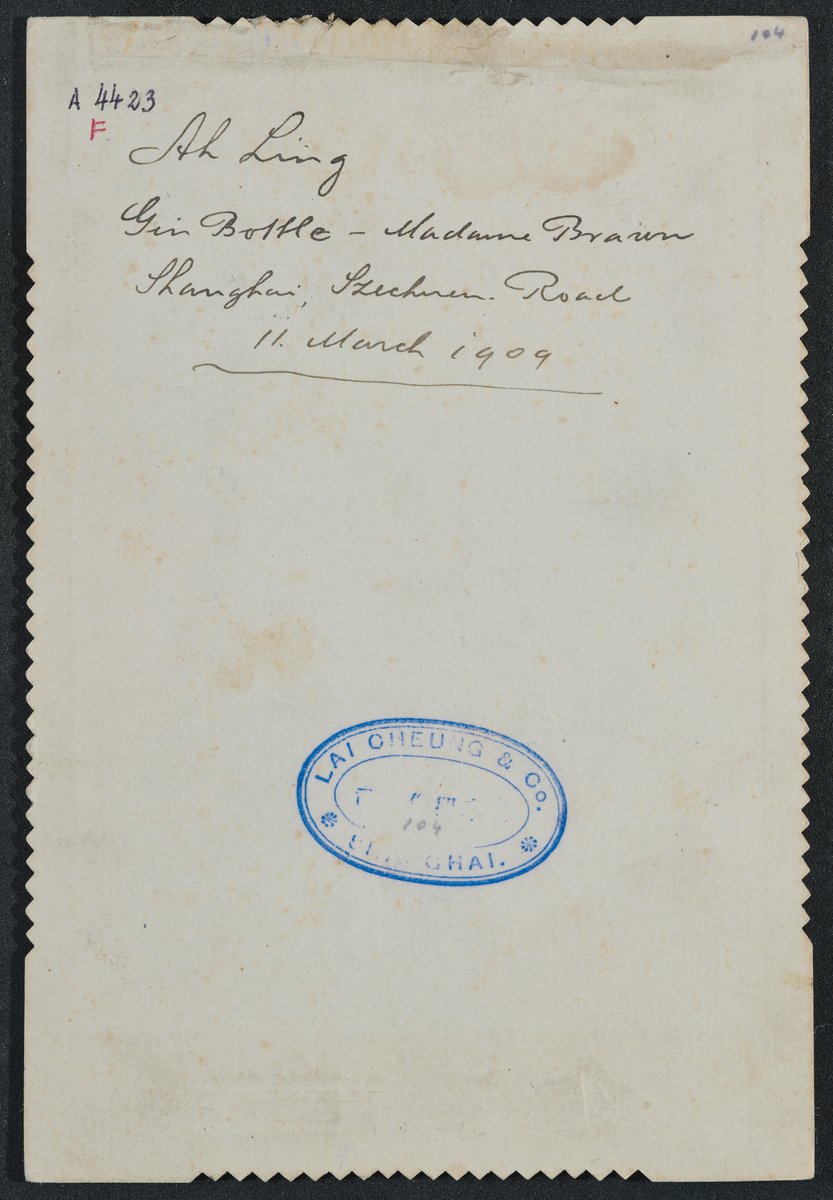 104
A 4423
F
Ah Ling
Gin Bottle – Madame Brawn
Shanghai, Szechuen. Road
11. March 1909
LAI CHEUNG & Co.
104